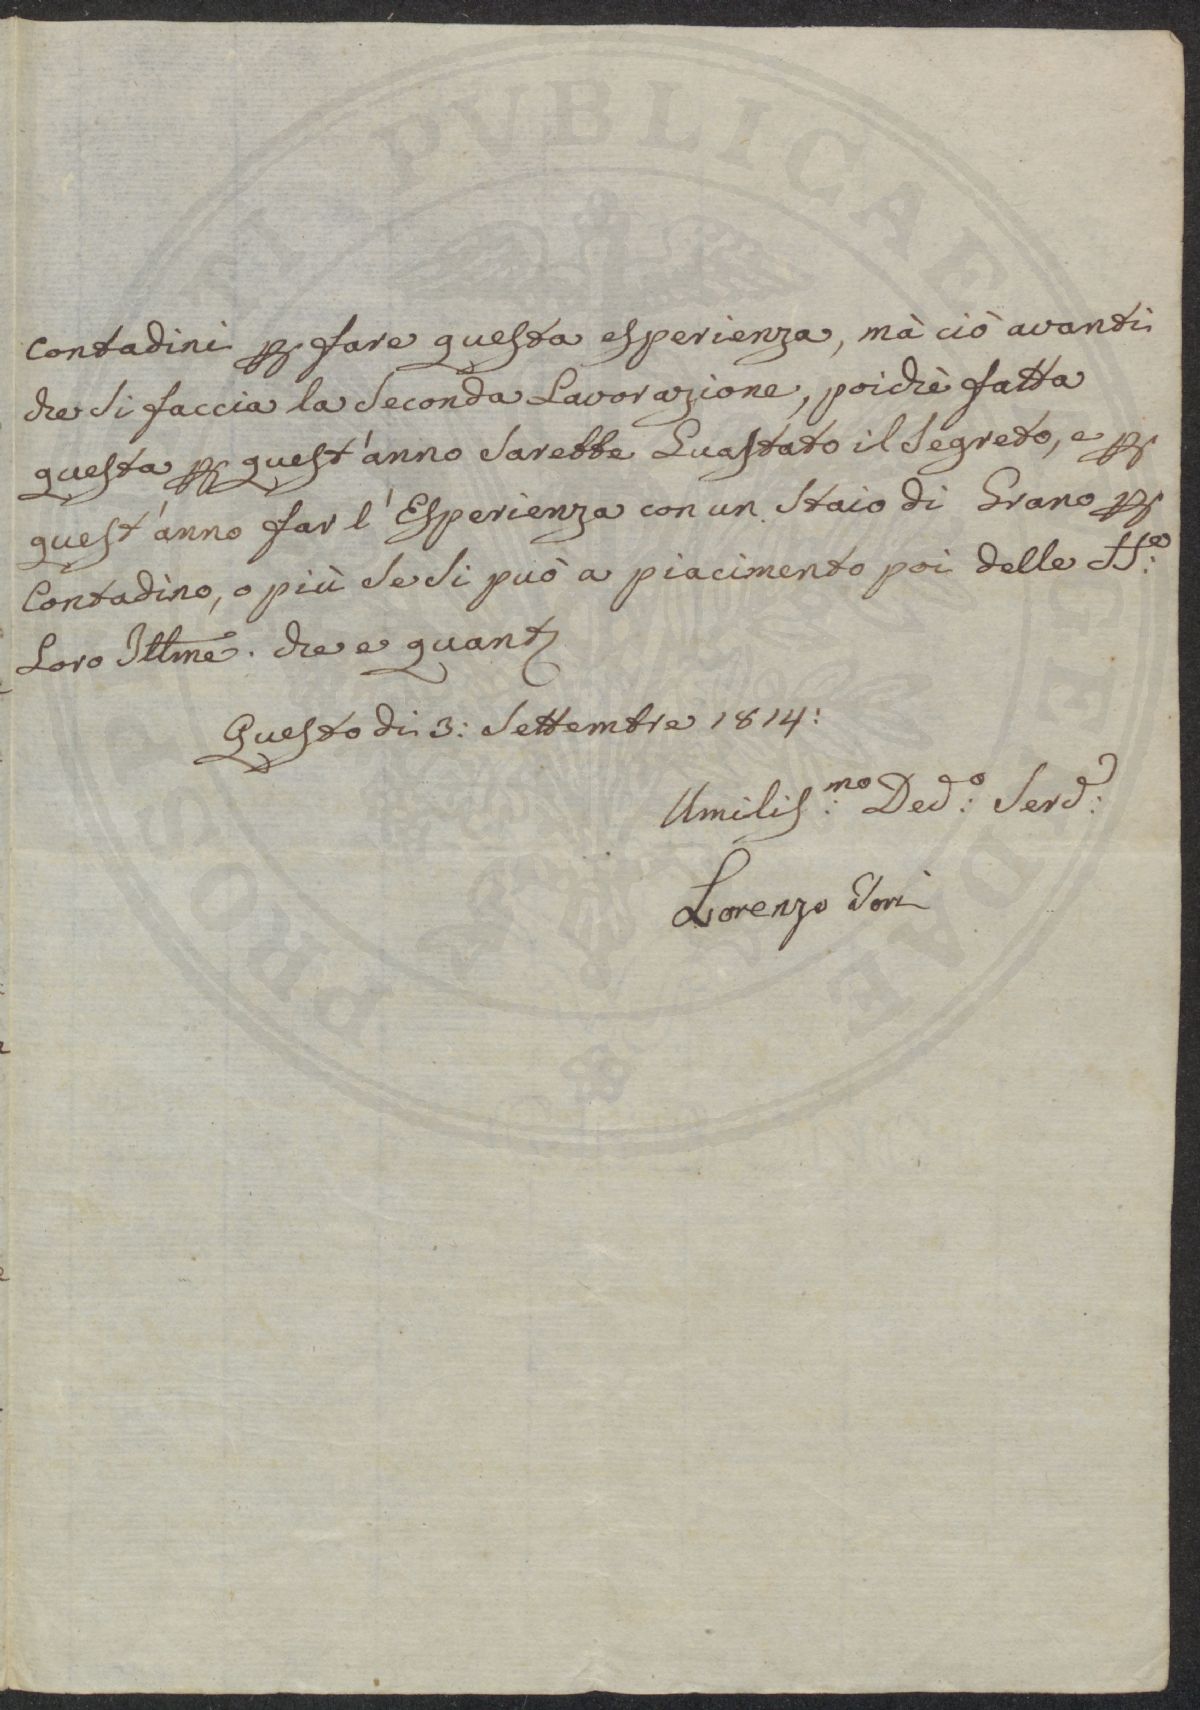 contadini p fare questa esperienza, mà ciò avanti
che si faccia la Seconda Lavorazione, poichè fatta
questa p quest'anno Sarebbe Guastato il Segreto, e p
quest'anno far l'Esperienza con un Staio di Grano p
Contadino, o più Se Si può a piacimento poi delle SS.e
Loro Illme. che e quant
Questo di 3: Settembre 1814:
Umilis:mo Ded:o Serd:
Lorenzo